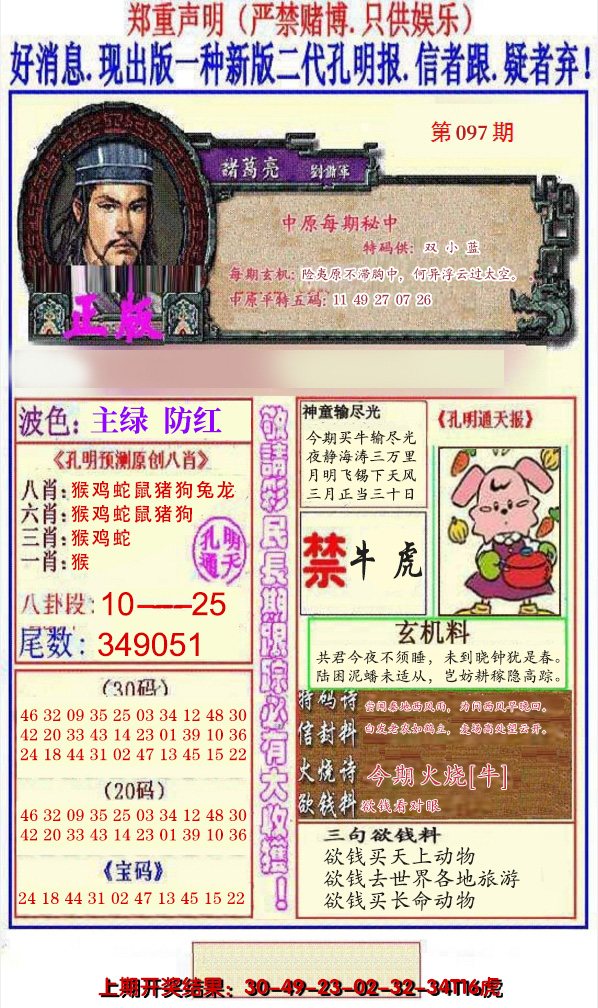 郑重声明（严禁赌博.只供娱乐）
好消息.现出版一种新版二代孔明报.信者跟.疑者弃!
第097期
諸葛亮 劉備軍
中原每期秘中
特码供：双 小 蓝
每期玄机：险夷原不滞胸中，何异浮云过太空。
中原平特五码：11 49 27 07 26
正版
波色：主绿 防红
《孔明预测原创八肖》
八肖：猴鸡蛇鼠猪狗兔龙
六肖：猴鸡蛇鼠猪狗
三肖：猴鸡蛇
一肖：猴
孔明通天
八卦段：10-----25
尾数：349051
（30码）
46 32 09 35 25 03 34 12 48 30
42 20 33 43 14 23 01 39 10 36
24 18 44 31 02 47 13 45 15 22
（20码）
46 32 09 35 25 03 34 12 48 30
42 20 33 43 14 23 01 39 10 36
《宝码》
24 18 44 31 02 47 13 45 15 22
敬請彩民長期跟踪必有大收獲！
神童输尽光
今期买牛输尽光
夜静海涛三万里
月明飞锡下天风
三月正当三十日
《孔明通天报》
禁 牛 虎
玄机料
共君今夜不须睡，未到晓钟犹是春。
陆困泥蟠未适从，岂妨耕稼隐高踪。
特码诗 尝闻秦地西风雨，为问西风早晚回。
信封料 白发老农如鹤立，麦场高处望云开。
火烧诗 今期火烧[牛]
欲钱料 欲钱看对眼
三句欲钱料
欲钱买天上动物
欲钱去世界各地旅游
欲钱买长命动物
上期开奖结果：30-49-23-02-32-34T16虎